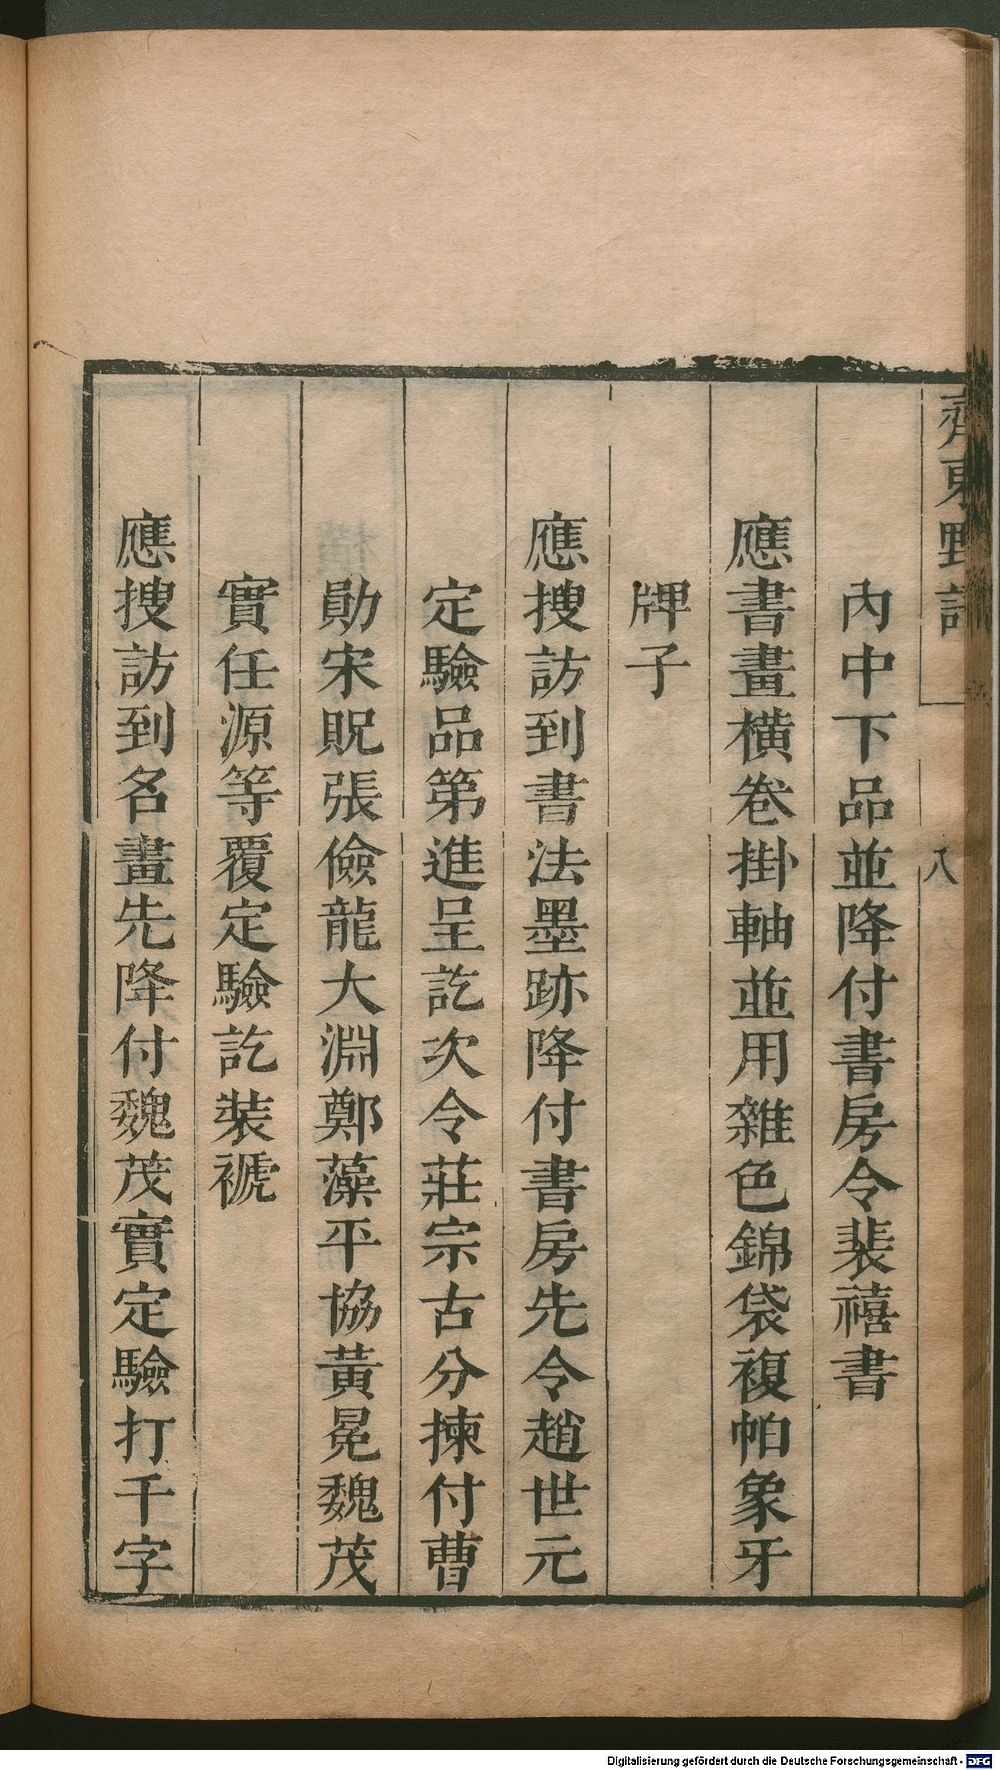 齊東野語
八
內中下品並降付書房令裴禧書
應書畫橫卷掛軸並用雜色錦袋複帕象牙
牌子
應搜訪到書法墨跡降付書房先令趙世元
定驗品第進呈訖次令莊宗古分揀付曹
勛宋貺張儉龍大淵鄭藻平協黃冕魏茂
實任源等覆定驗訖裝褫
應搜訪到名畫先降付魏茂實定驗打千字
Digitalisierung gefördert durch die Deutsche Forschungsgemeinschaft - DFG